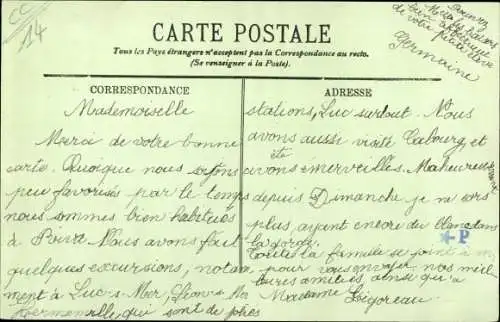 14
CARTE POSTALE
Tous les Pays étrangers n'acceptent pas la Correspondance au recto.
(Se renseigner à la Poste).
CORRESPONDANCE
Mademoiselle
Merci de votre bonne
carte. Quoique nous soyons
peu favorisés par le temps
nous sommes bien habitués
à Nous avons fait
quelques excursions, notam
ment à Luc s- Mer, Lion s- Mer
Hermanville, qui sont de jolies
ADRESSE
stations, Luc surtout. Nous
avons aussi visité Cabourg et
avons été émerveillés. Malheureusement
depuis Dimanche je ne sors
plus, ayant encore du blanc dans
la gorge.
toute la famille se joint à moi
pour vous envoyer nos meil
leures amitiés, ainsi qu'à
Madame Ligoreau.
Recevez
Melle les baisers
bien affectueux
de votre petite élève
Germaine
P